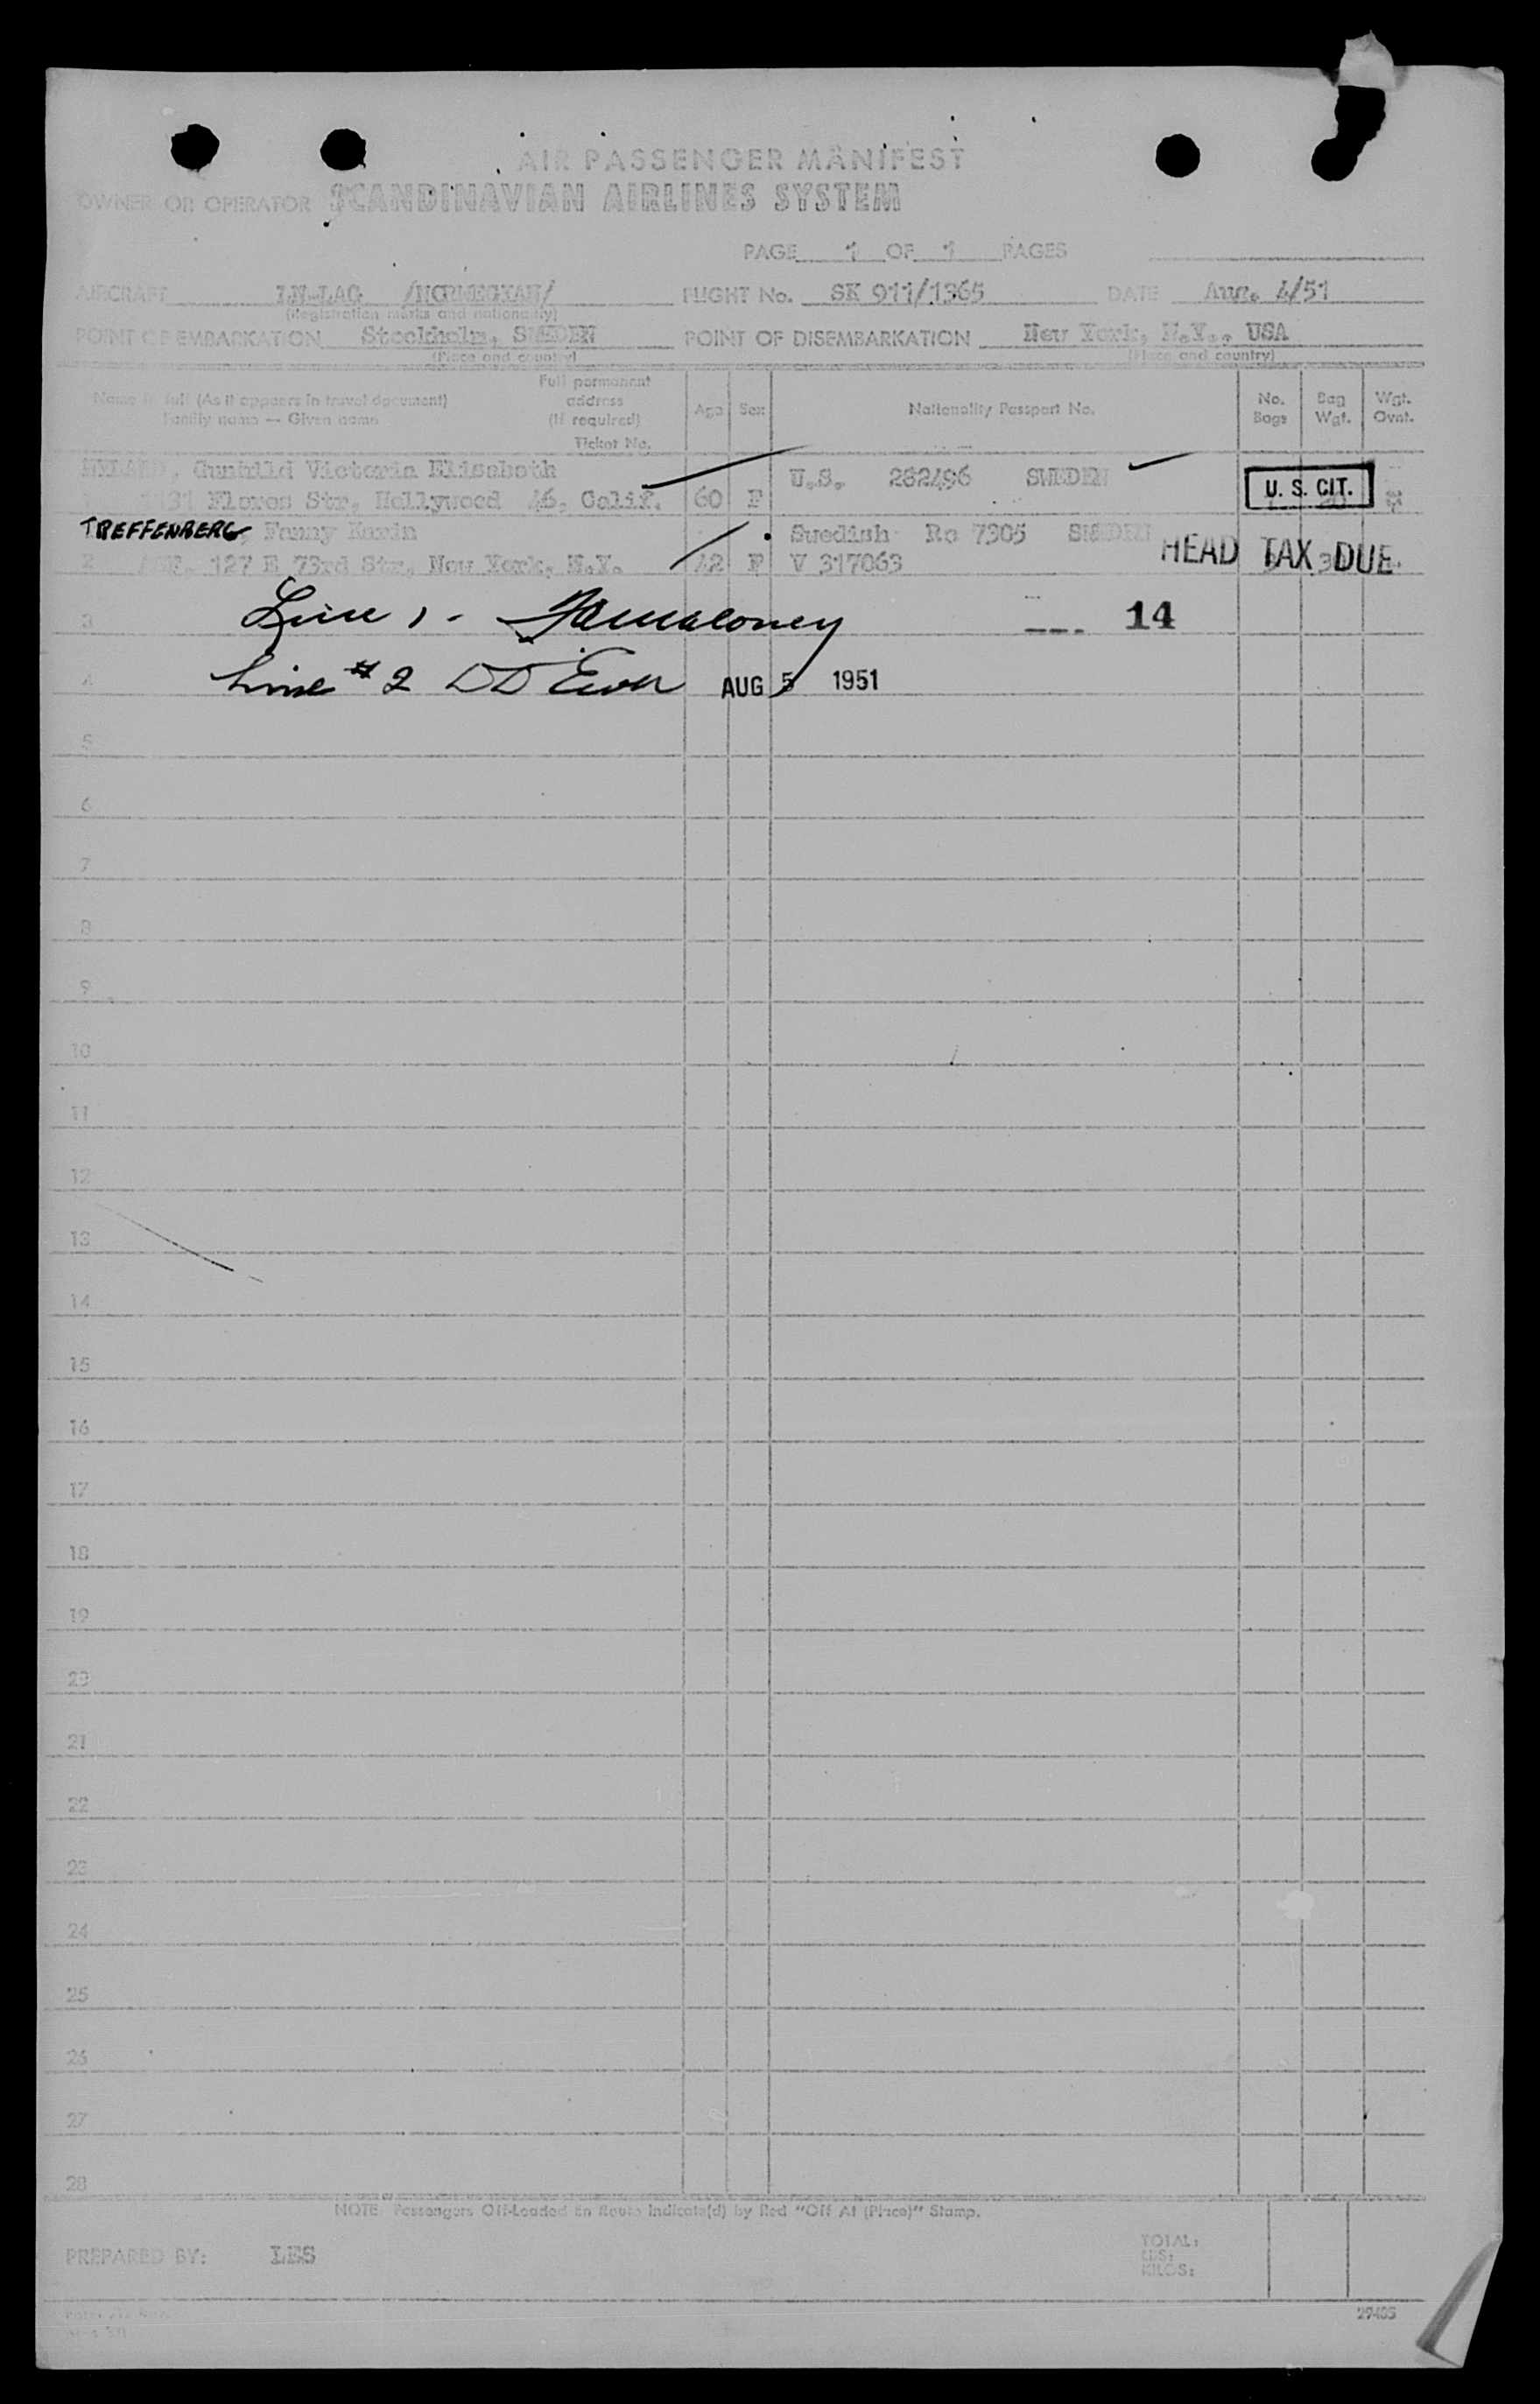 AIR PASSENGER MANIFEST
OWNER OR OPERATOR SCANDINAVIAN AIRLINES SYSTEM
PAGE 1 OF 1 PAGES
AIRCRAFT LN-LAG /NORWEGIAN/ FLIGHT No. SK 911/1365 DATE Aug. 4/51
(Registration marks and nationality)
POINT OF EMBARKATION Stockholm, SWEDEN POINT OF DISEMBARKATION New York, N.Y., USA
(Place and country) (Place and country)
Name in full (As it appears in travel document) Family name — Given name
Full permanent address (If required) Ticket No.
Age Sex Nationality Passport No. No. Bags Bag Wgt. Wgt. Ovnt.
Gunhild Victoria Elisabeth U.S. 282496 SWEDEN
Flores Str, Hollywood 46, Calif. 60 F U. S. CIT.
TREFFENBERG, Fanny Karin Swedish Ro 7305 SWEDEN
2 127 E 73rd Str, New York, N.Y. 42 F V 317063 HEAD TAX DUE
3 Line 1 - Maloney 14
4 Line #2 AUG 5 1951
5
6
7
8
9
10
11
12
13
14
15
16
17
18
19
20
21
22
23
24
25
26
27
28
NOTE Passengers Off-Loaded En Route Indicate(d) by Red "Off At (Place)" Stamp.
PREPARED BY: LES TOTAL:
LBS:
KILOS:
29405